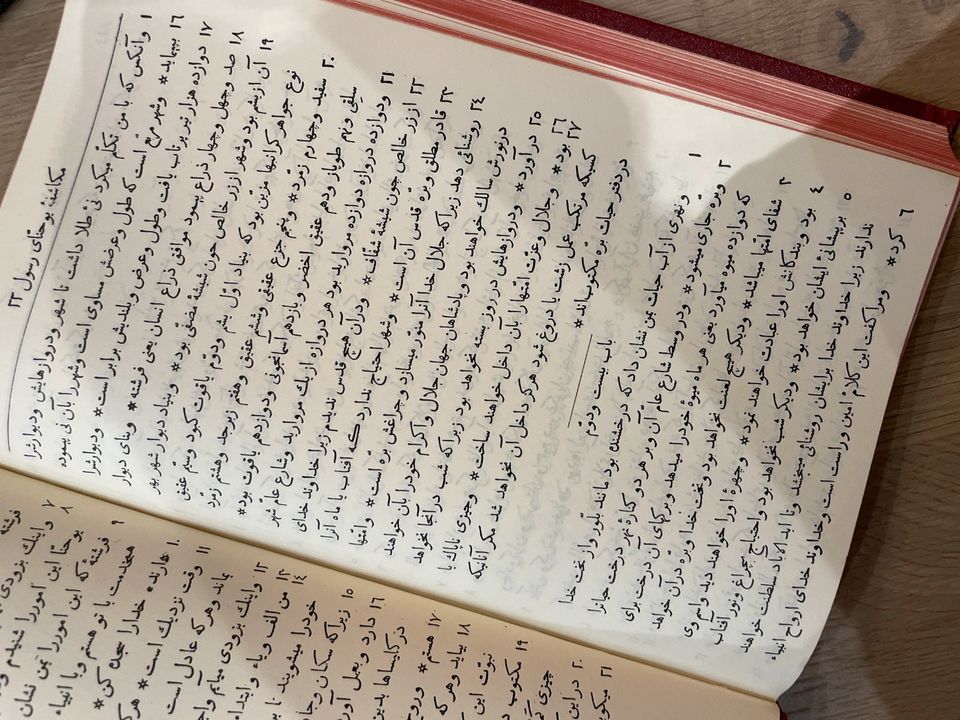 مکاشفهٔ یوحنّای رسول ۲۲
وآنکس که با من تکلّم میکرد نی طلا داشت تا شهر ودروازهایش ودیوارشرا
۱۶ بپیماید * وشهر مربّع است که طول وعرضش مساوی است وشهررا بآن نی پیموده
۱۷ دوازده هزار تیر پرتاب یافت وطول وعرض وبلندیش برابر است * ودیوارشرا
۱۸ صد وچهل وچهار ذراع پیمود موافق ذراع انسان یعنی فرشته * وبنای دیوار
۱۹ آن از یشم بود وشهر از زر خالص چون شیشهٔ مصفّی بود * وبنیاد دیوار شهر بهر
نوع جواهر گرانبها مزیّن بود که بنیاد اوّل یشم ودوّم یاقوت کبود وسیّم عقیق
۲۰ سفید وچهارم زمرّد * وپنجم جزع عقیقی وششم عقیق وهفتم زبرجد وهشتم زمرّد
سلقی ونهم طوپاز ودهم عقیق اخضر ویازدهم آسمانجونی ودوازدهم یاقوت بود *
۲۱ ودوازده دروازه دوازده مروارید بود هر دروازه از یک مروارید وشارع عامّ شهر
۲۲ از زر خالص چون شیشهٔ شفّاف * ودر آن هیچ قدس ندیدم زیرا خداوند خدای
۲۳ قادر مطلق وبرّه قدس آن است * وشهر احتیاج ندارد که آفتاب یا ماه آنرا
۲۴ روشنائی دهد زیرا که جلال خدا آنرا منوّر میسازد وچراغش برّه است * وامّتها
در نورش سالک خواهند بود وپادشاهان جهان جلال واکرام خودرا بآن خواهند
۲۵ درآورد * ودروازهایش در روز بسته نخواهد بود زیرا که شب در آنجا نخواهد
۲۶ بود * وجلال وعزّت امّتهارا بآن داخل خواهند ساخت * وچیزی ناپاک یا
۲۷ کسیکه مرتکب عمل زشت یا دروغ شود هرگز داخل آن نخواهد شد مگر آنانیکه
در دفتر حیات برّه مکتوب‌اند *
باب بیست ودوّم
۱ ونهری از آب حیات بمن نشان داد که درخشنده بود مانند بلّور واز تخت خدا
۲ وبرّه جاری میشود * ودر وسط شارع عامّ آن وبر هر دو کنارهٔ نهر درخت حیاترا
که دوازده میوه میآورد یعنی هر ماه میوهٔ خودرا میدهد وبرگهای آن درخت برای
۳ شفای امّتها میباشد * ودیگر هیچ لعنت نخواهد بود وتخت خدا وبرّه در آن خواهد
۴ بود وبندگانش اورا عبادت خواهند نمود * وچهرهٔ اورا خواهند دید واسم وی
۵ بر پیشانئ ایشان خواهد بود * ودیگر شب نخواهد بود واحتیاج بچراغ ونور آفتاب
ندارند زیرا خداوند خدا بر ایشان روشنائی میبخشد وتا ابد الآباد سلطنت خواهند
۶ کرد * ومرا گفت این کلام امین وراست است وخداوند خدای ارواح انبیاء
فرشتهٔ
۷ واینک بزودی
۸ یوحنّا این امور را شنیدم
فرشته که این امور را بمن نشان
۹ همخدمت با تو هستم وبا انبیاء
هارند خدارا سجده کن *
۱۰ وقت نزدیک است * هر که
۱۱ ماند وهر که عادل است
۱۲ واینک بزودی میآیم واجر
۱۳ من الف ویاء وابتداء
۱۴ خودرا میشویند تا بر
۱۵ زیرا که سگان وجا
۱۶ دارد وبعمل آور
در کلیساها بدین
۱۷ هستم * وروح
۱۸ بیاید وهر که
نبوّت این
۱۹ مکتوب
چیزی
۲۰ در این
۲۱ میگو